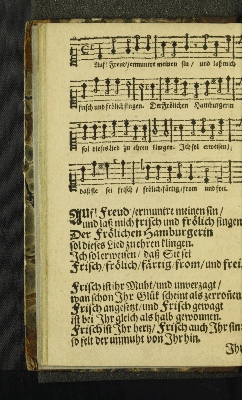 Auf! Freud/ermuntre meinen sin/ und laß mich
frisch und frölich singen. Der Frölichen Hamburgerin
sol dieses Lied zu ehren klingen. Ich sol erweisen/
daß sie sei frisch/ frölich/färtig/from und frei.
Auf! Freud/ermuntre meinen sin/
und laß mich frisch und frölich singen
Der Frölichen Hamburgerin
sol dieses Lied zu ehren klingen.
Ich sol erweisen/ daß Sie sei
Frisch/frölich/färtig/from/und frei.
Frisch ist ihr Muht/und unverzagt/
wan schon Ihr Glük scheint als zerronnen
Frisch angesetzt/und Frisch gewagt
ist bei Ihr gleich als halb gewonnen.
Frisch ist Ihr hertz/Frisch auch Ihr sin
so felt der unmuht von Ihr hin.
Ihr